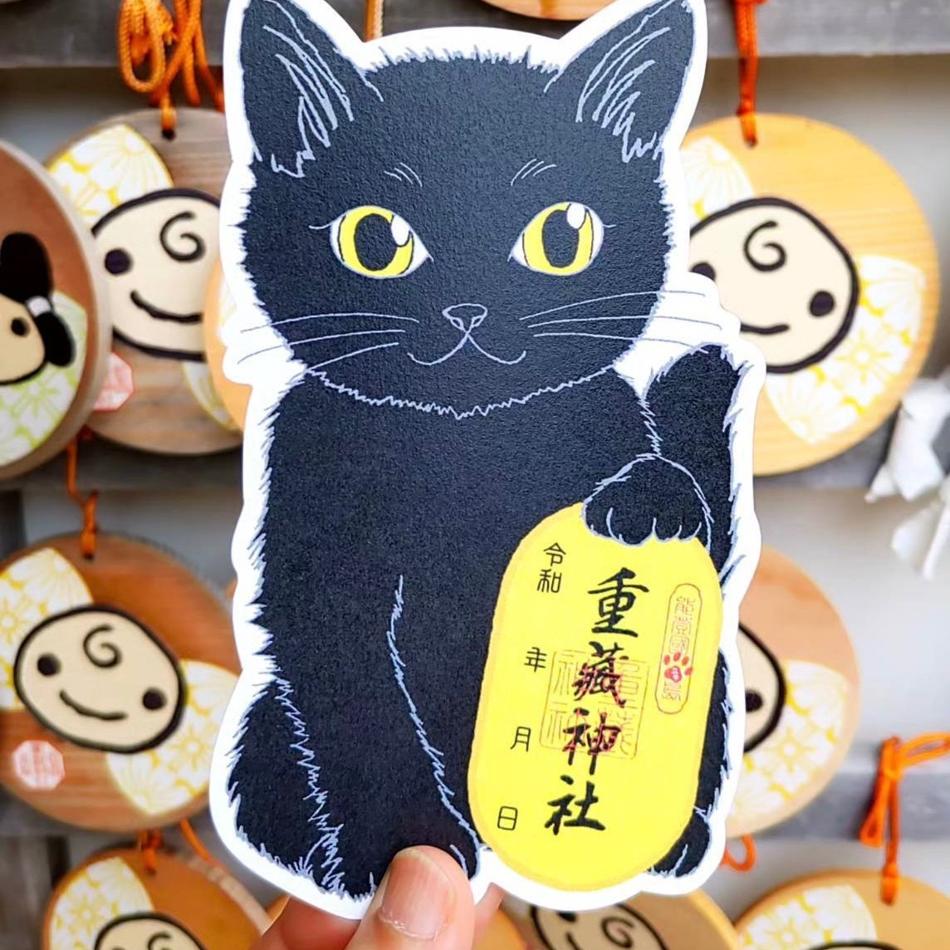 重藏神社
令和 年 月 日